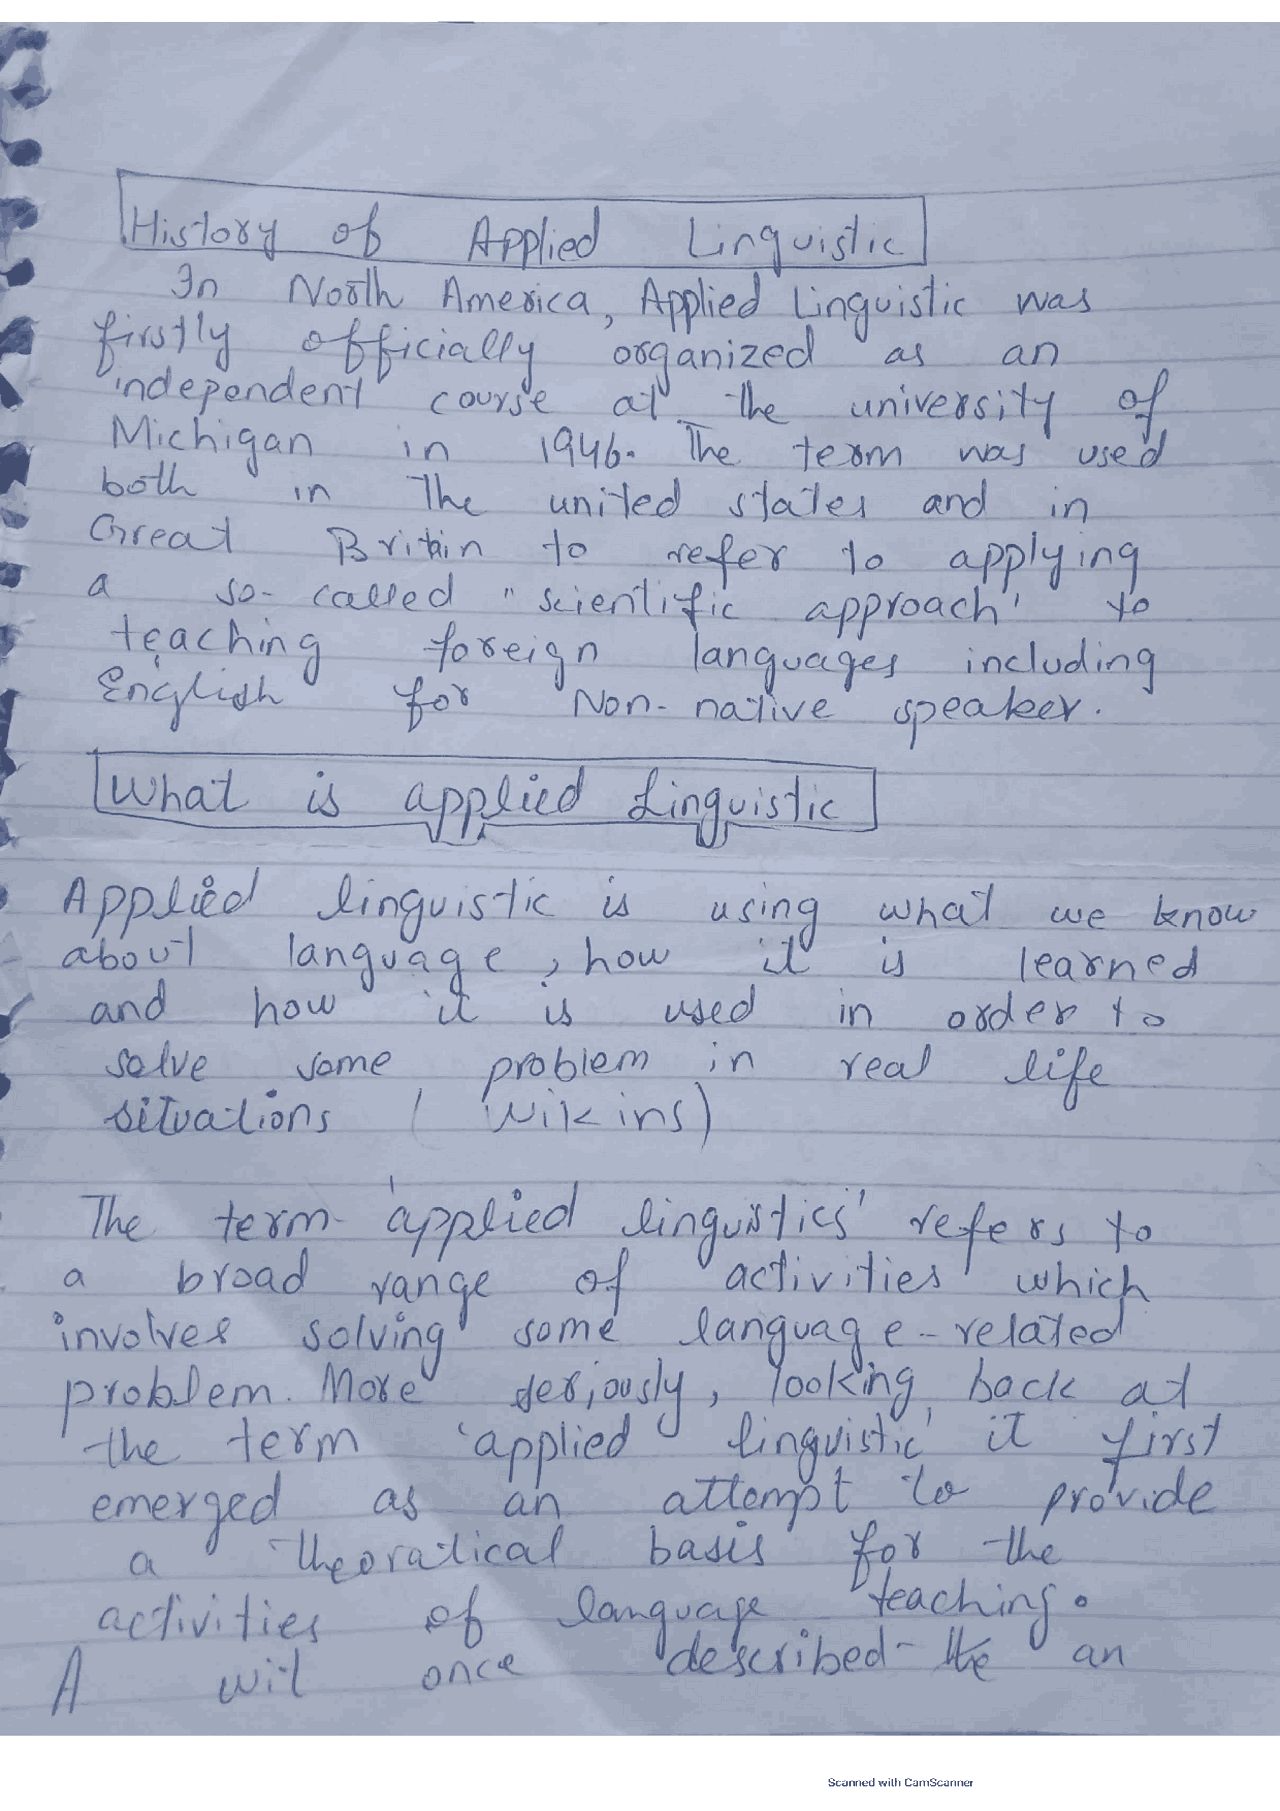 History of Applied Linguistic
In North America, Applied Linguistic was
firstly officially organized as an
independent course at the university of
Michigan in 1946. The term was used
both in The united states and in
Great Britain to refer to applying
a so-called "scientific approach" to
teaching foreign languages including
English for Non-native speaker.
What is applied Linguistic
Applied linguistic is using what we know
about language, how it is learned
and how it is used in order to
solve some problem in real life
situations (Wikins)
The term 'applied linguistics' refers to
a broad range of activities which
involves solving some language-related
problem. More seriously, looking back at
the term 'applied linguistic' it first
emerged as an attempt to provide
a theoratical basis for the
activities of language teaching.
A wit once described the an
Scanned with CamScanner